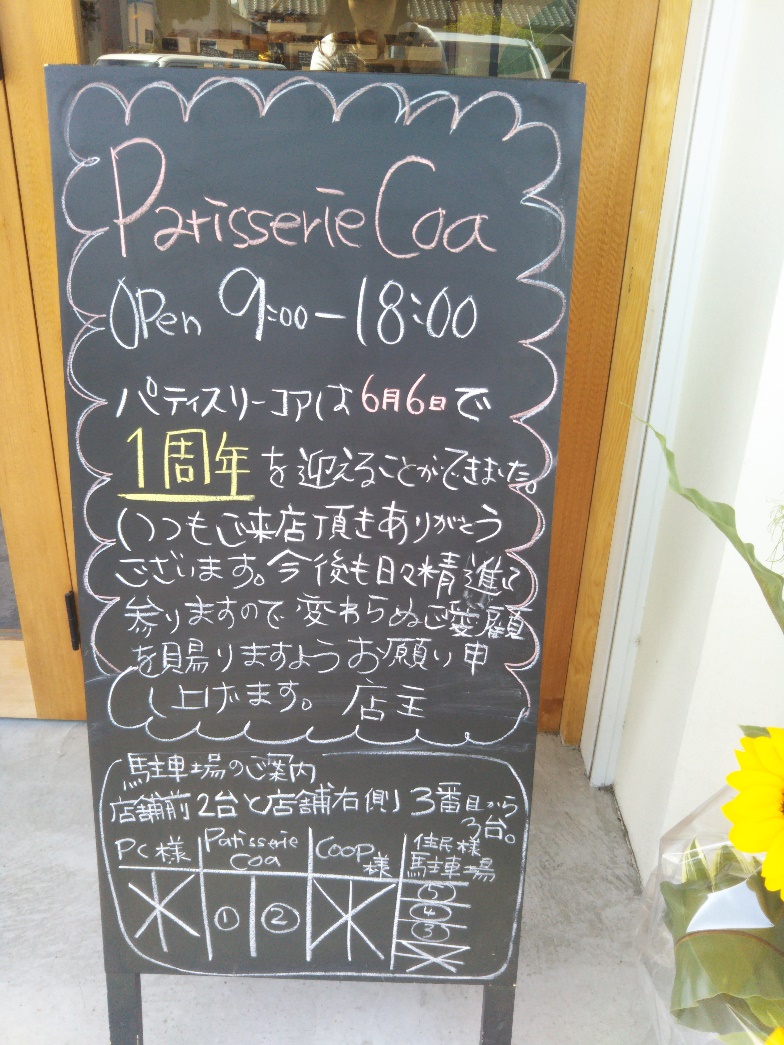 Patisserie Coa
OPen 9:00－18:00
パティスリーコアは6月6日で
1周年を迎えることができました。
いつもご来店頂きありがとう
ございます。今後も日々精進して
参りますので変わらぬご愛顧
を賜りますようお願い申
し上げます。 店主
駐車場のご案内
店舗前2台と店舗右側3番目から
3台。
PC様 Patisserie Coa Coop様 住民様駐車場
① ② ⑤
④
③